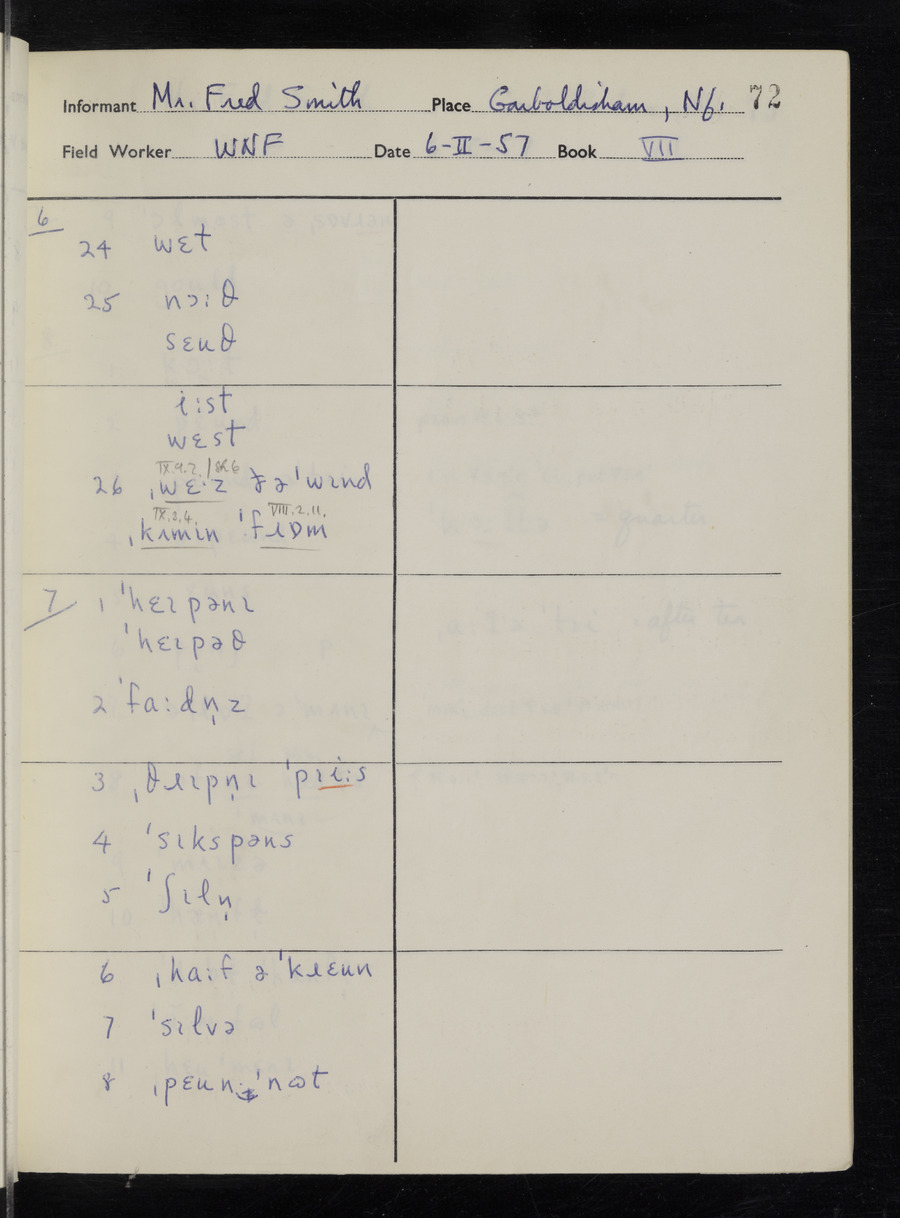 Informant Mr. Fred Smith Place Garboldisham, Nf. 72
Field Worker WNF Date 6-II-57 Book VII
6
24 wɛt
25 nɔːθ
sɛuθ
iːst
wɛst
IX.9.2./SR6
26 ˌwɛˑz ðəˈwɪnd
IX.3.4. VIII.2.11.
ˌkʌmɪn ˈfɹɒm
7
1 ˈhɛɪpənɪ
ˈhɛɪpəθ
2 ˈfaːdn̩z
3 ˌθɹɪpn̩ɪ ˈpɪiːs
4 ˈsɪkspəns
5 ˈʃɪln̩
6 ˌhaːf ə ˈkɹɛun
7 ˈsɪlvə
8 ˌpɛun ˈnɷt